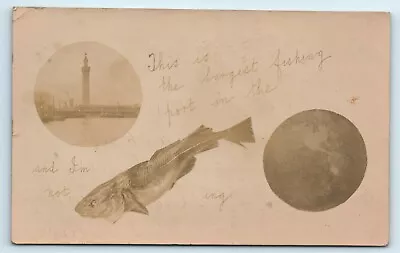 This is
the longest fishing
port in the
and I'm
not
ing